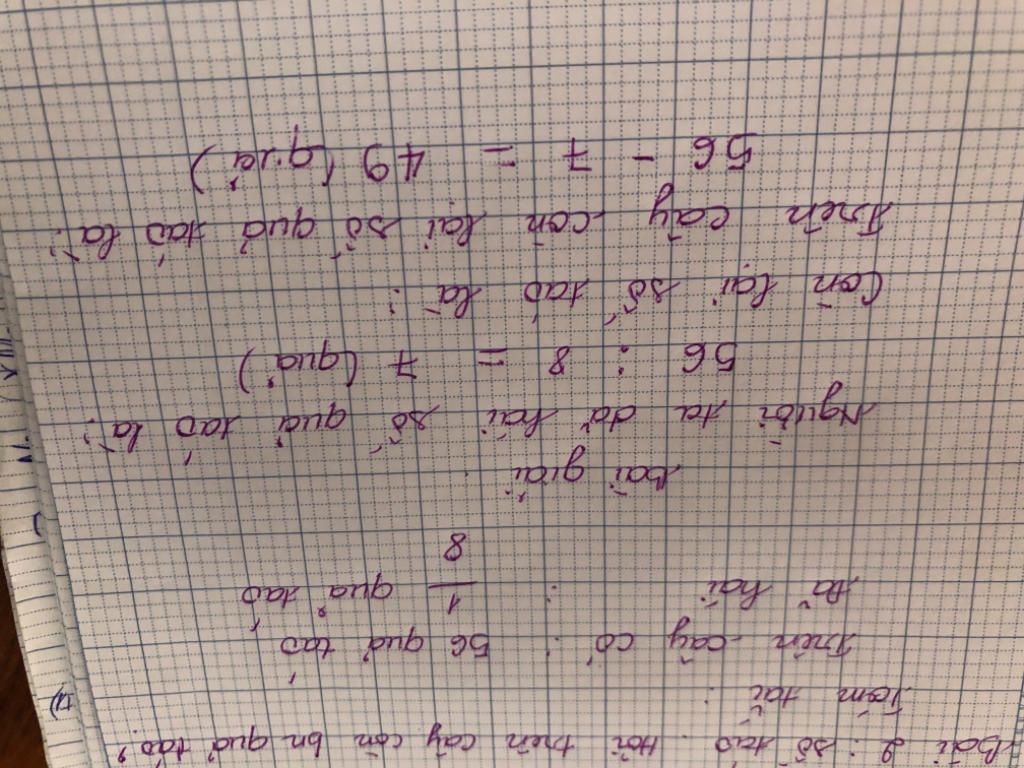 Bài 2 : số táo. Hỏi trên cây còn bn quả táo?
Tóm tắt :
Trên cây có : 56 quả táo
Đã hái : 1/8 quả táo
Bài giải
Người ta đã hái số quả táo là :
56 : 8 = 7 (quả)
Còn lại số táo là :
Trên cây còn lại số quả táo là :
56 - 7 = 49 (quả)